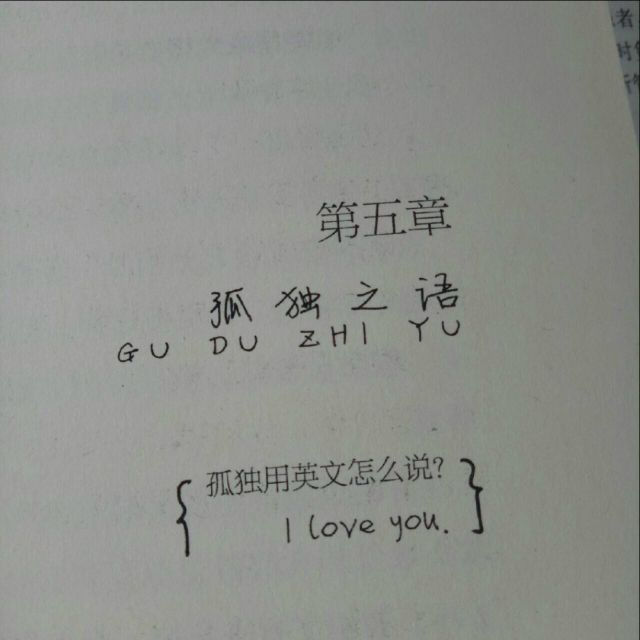 第五章
孤独之语
GU DU ZHI YU
孤独用英文怎么说?
I love you.